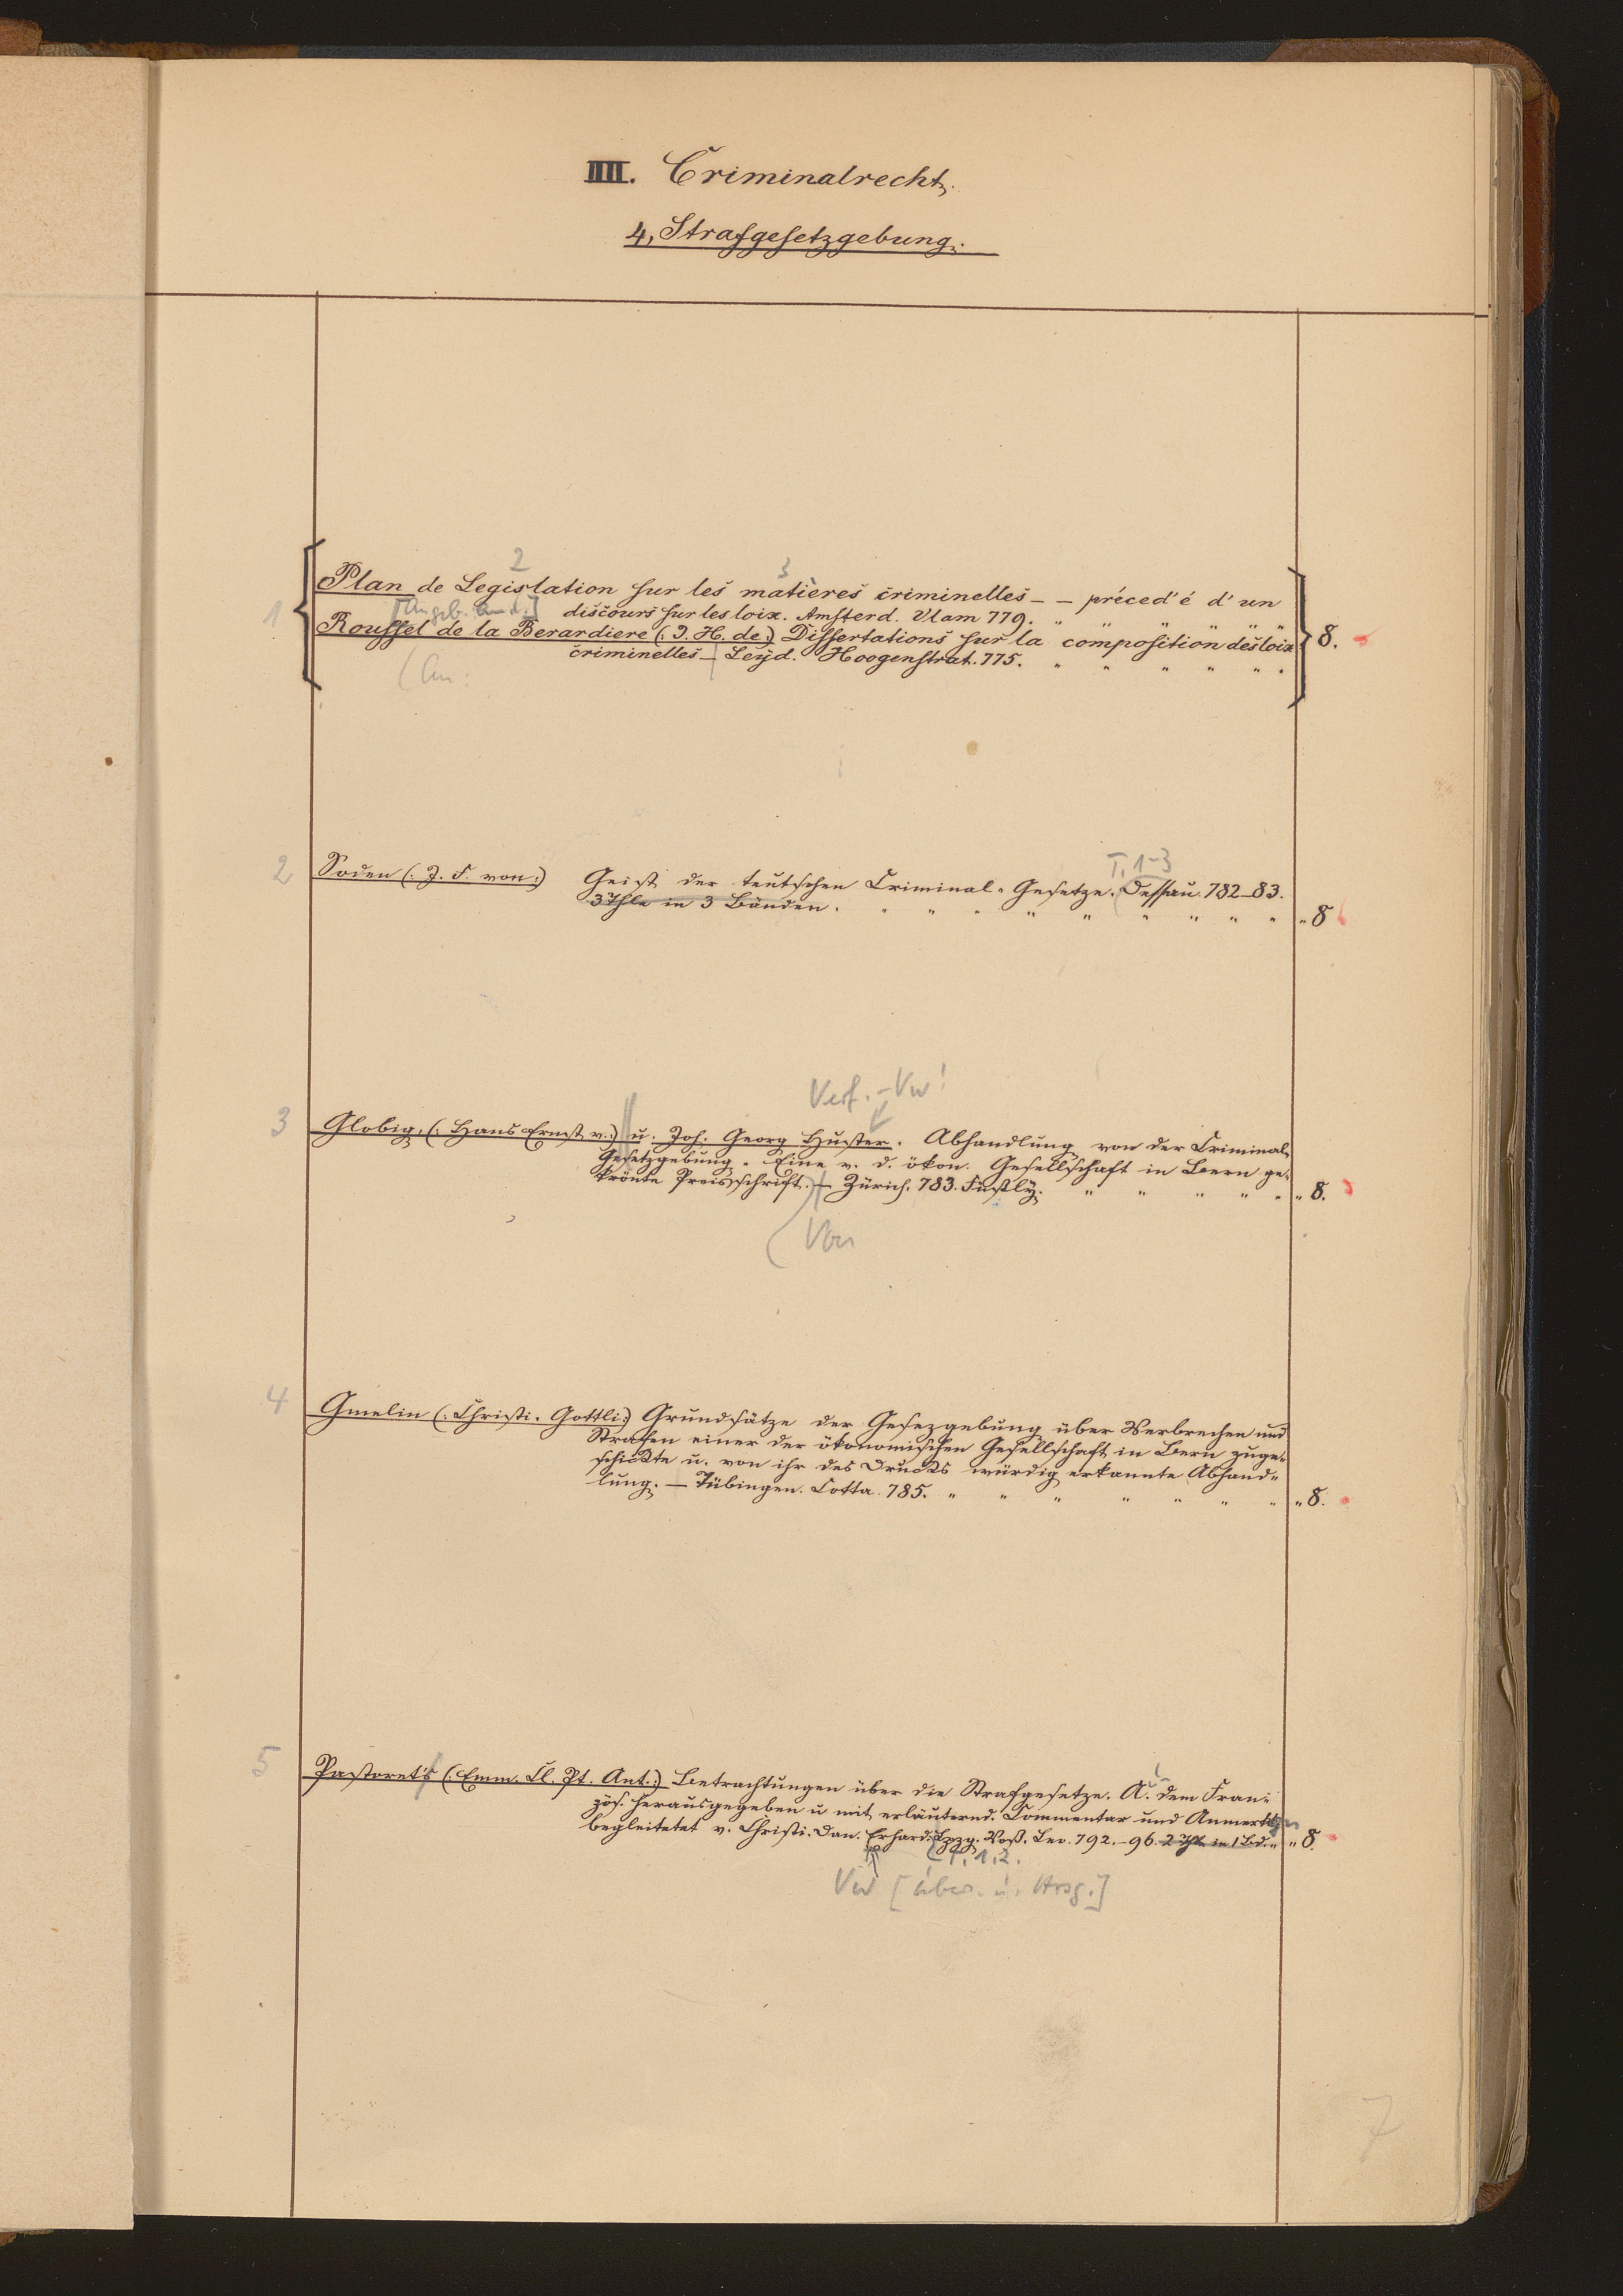 IIII. Criminalrecht.
4, Strafgesetzgebung.
2 3
1 Plan de Legislation sur les matières criminelles — — préced'é d'un
[Angeb. an d.] discours sur les loix. Amsterd. Vlam 779. " " " " " "
Roussel de la Berardiere (: I. H. de:) Dissertations sur la composition des loix 8.
criminelles — Leyd. Hoogenstrat. 775. " " " " " "
(An:
T. 1-3
2 Soden (: J. F. von:) Geist der teutschen Criminal-Gesetze. Dessau. 782–83.
3 Thle in 3 Bänden. " " " " " " " " " " 8
Verf. - Vw!
3 Globig, (: Hans Ernst v.:) u. Joh. Georg Huster. Abhandlung von der Criminal-
Gesetzgebung. Eine v. d. ökon. Gesellschaft in Bern ge-
krönte Preisschrift. — Zürich. 783. Füßly. " " " " " " 8.
Von
4 Gmelin (: Christi. Gottli:) Grundsätze der Gesezgebung über Verbrechen und
Strafen einer der ökonomischen Gesellschaft in Bern zuge-
schickte u. von ihr des Drucks würdig erkannte Abhand-
lung. — Tübingen. Cotta. 785. " " " " " " " " 8.
5 Pastoret's (: Emm. Cl. Pt. Ant.:) Betrachtungen über die Strafgesetze. A. dem Fran-
zös. herausgegeben u mit erläuternd. Commentar und Anmerkgn
begleitetet v. Christi. Dan. Erhard. Lpzg. Voß. Leo. 792.–96. 2 Thle in 1 Bd. " " 8.
T. 1.2.
Vw [übers. u. Hrsg.]
7